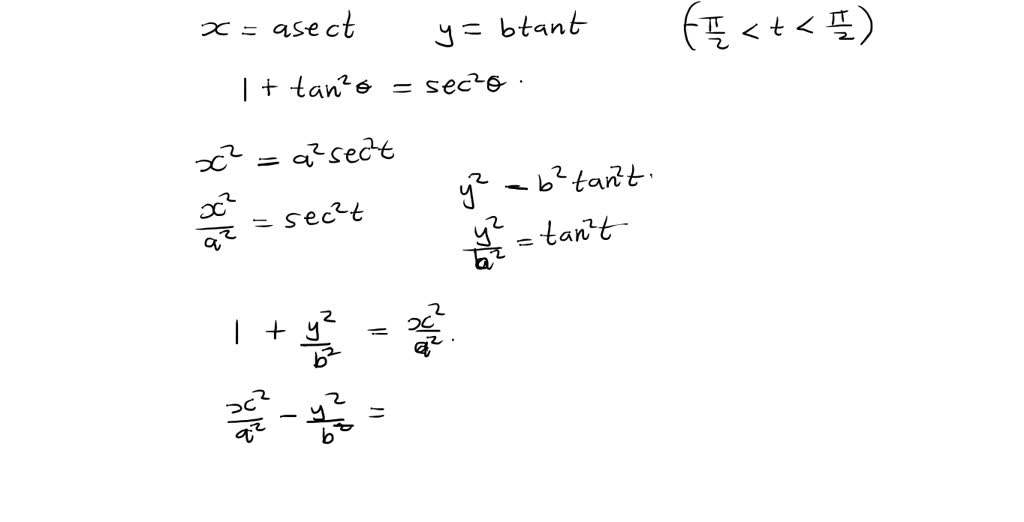 x = asect y = btant (-π/2 < t < π/2)
1 + tan²θ = sec²θ.
x² = a²sec²t
y² - b²tan²t.
x²/a² = sec²t
y²/b² = tan²t
1 + y²/b² = x²/a².
x²/a² - y²/b² =